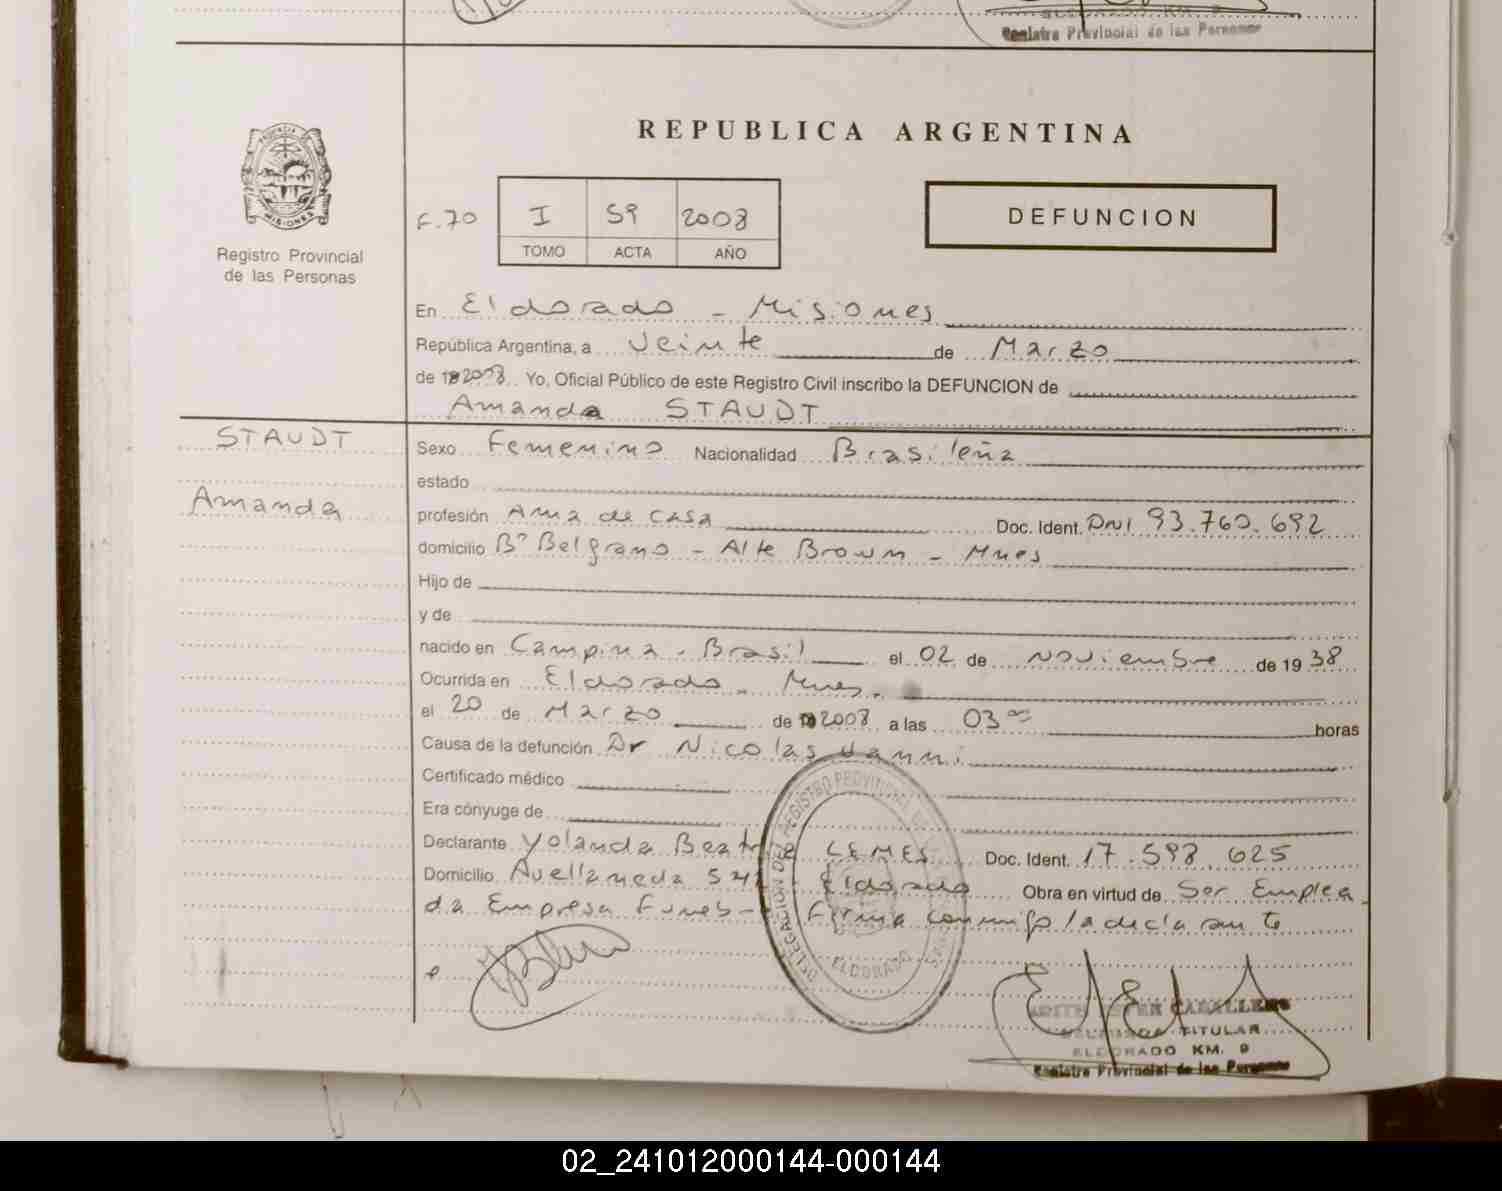 ELDORADO KM. 9
Registro Provincial de las Personas
PROVINCIA DE
MISIONES
Registro Provincial
de las Personas
REPUBLICA ARGENTINA
F.70
I 59 2008
TOMO ACTA AÑO
DEFUNCION
En Eldorado - Misiones
República Argentina, a Veinte de Marzo
de 2008 Yo, Oficial Público de este Registro Civil inscribo la DEFUNCION de
Amanda STAUDT
STAUDT
Amanda
Sexo Femenino Nacionalidad Brasileña
estado
profesión Ama de casa Doc. Ident. DNI 93.760.692
domicilio Bº Belgrano - Alte Brown - Mnes
Hijo de
y de
nacido en Campina - Brasil el 02 de Noviembre de 1938
Ocurrida en Eldorado - Mnes.
el 20 de Marzo de 2008 a las 03 horas
Causa de la defunción Dr Nicolas Vanni
Certificado médico
Era cónyuge de
Declarante Yolanda LEMES Doc. Ident. 17.598.625
Domicilio Avellaneda Eldorado Obra en virtud de Ser Emplea
da Empresa Funeb- Firma conmigo la declarante
DELEGACION DEL REGISTRO PROVINCIAL
ELDORADO
ESTER CABALLERO
TITULAR
ELDORADO KM. 9
Registro Provincial de las Personas
02_241012000144-000144